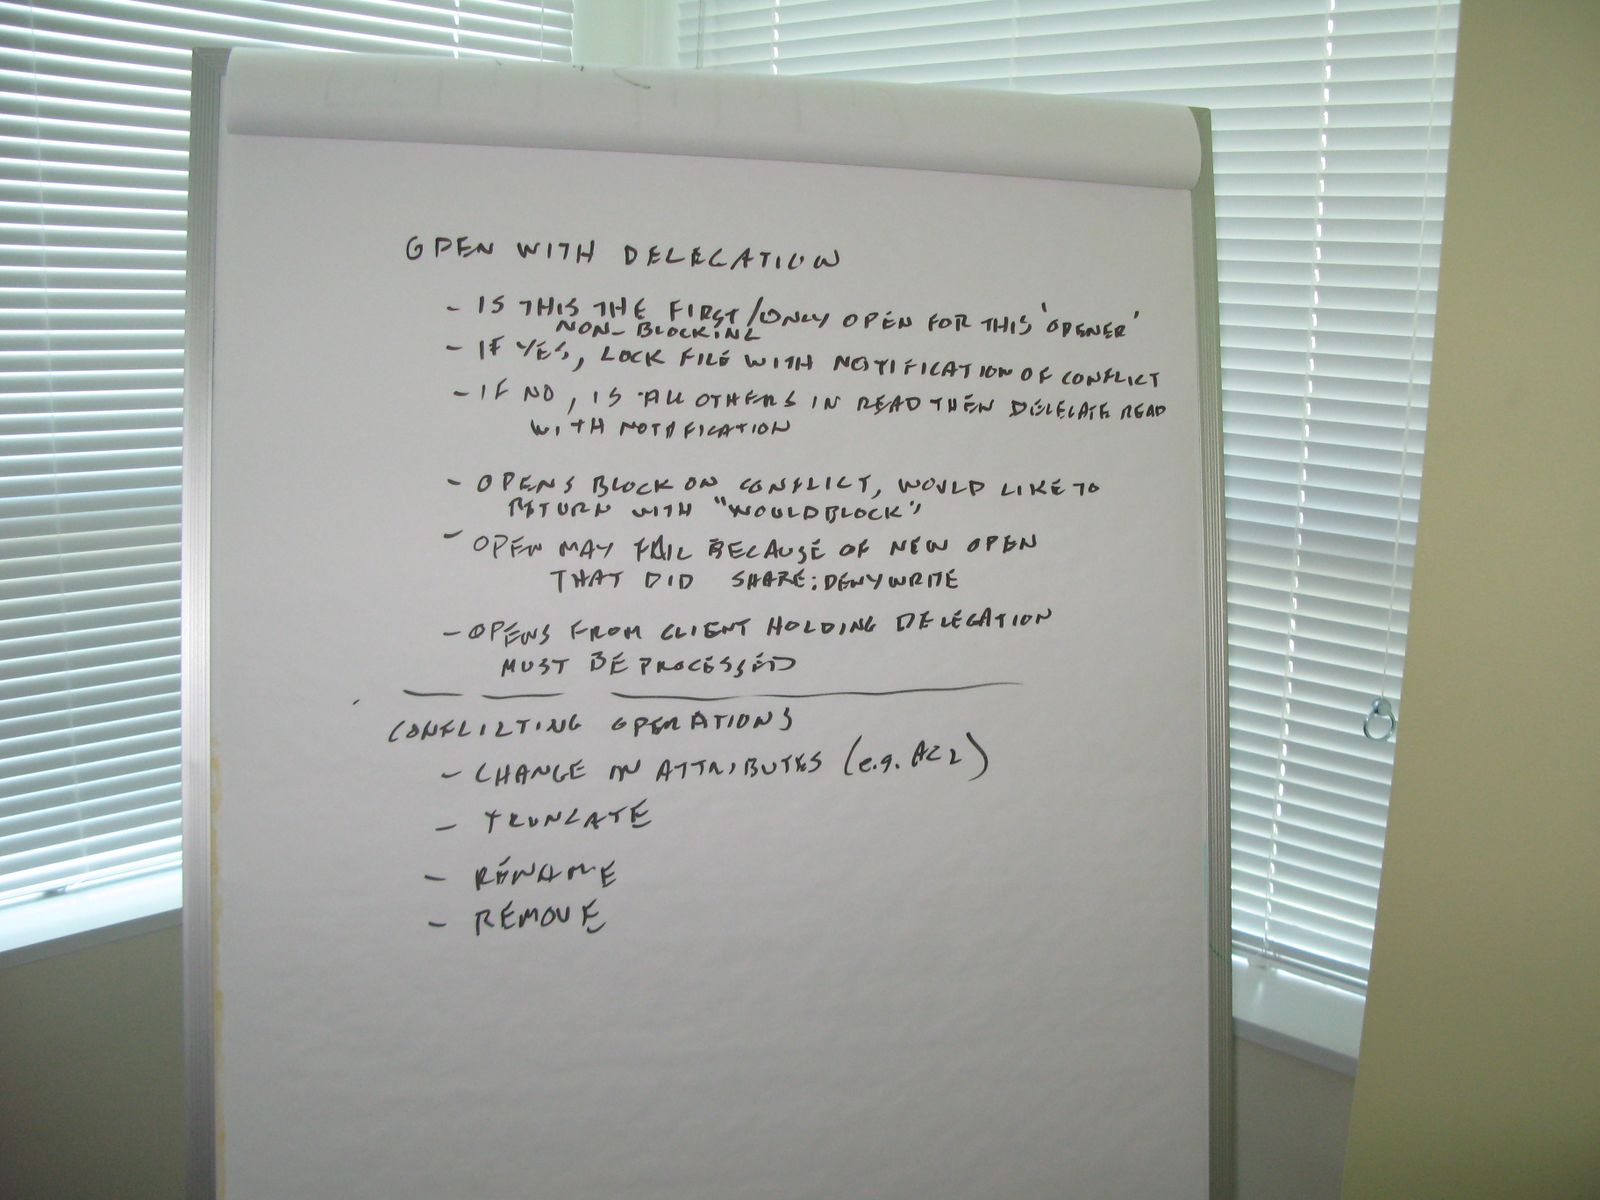 OPEN WITH DELEGATION
- IS THIS THE FIRST/ONLY OPEN FOR THIS 'OPENER'
NON-BLOCKING
- IF YES, LOCK FILE WITH NOTIFICATION OF CONFLICT
- IF NO, IS ALL OTHERS IN READ THEN DELEGATE READ
WITH NOTIFICATION
- OPENS BLOCK ON CONFLICT, WOULD LIKE TO
RETURN WITH "WOULDBLOCK"
- OPEN MAY FAIL BECAUSE OF NEW OPEN
THAT DID SHARE:DENYWRITE
- OPENS FROM CLIENT HOLDING DELEGATION
MUST BE PROCESSED
CONFLICTING OPERATIONS
- CHANGE IN ATTRIBUTES (e.g. ACL)
- TRUNCATE
- RENAME
- REMOVE